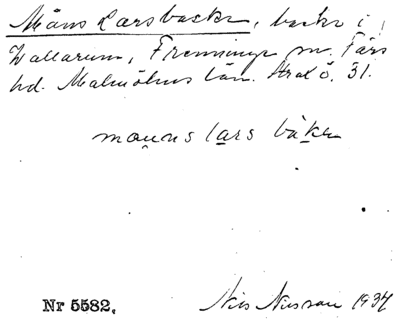 Måns Larsbacke, backe i
Vallarum, Frenninge sn. Färs
hd. Malmöhus län. Skal ö. 31.
mauns lars bake
Nr 5582. Nils Nilsson 1934